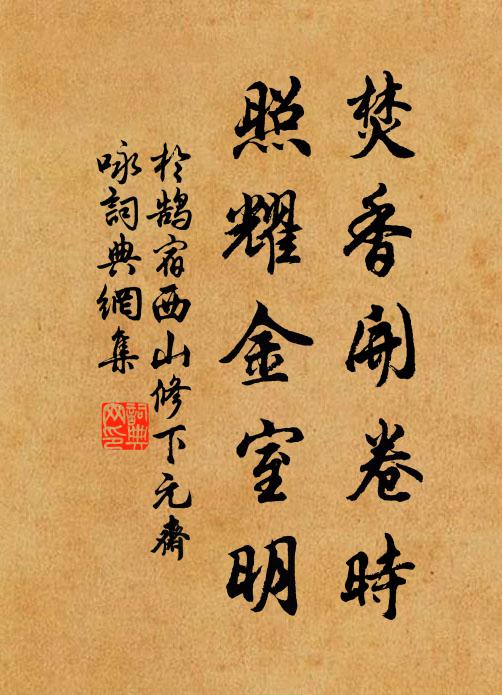 焚香開卷時
照耀金室明
於鵠宿西山修下元齋
咏詞典網集
詞典
网印